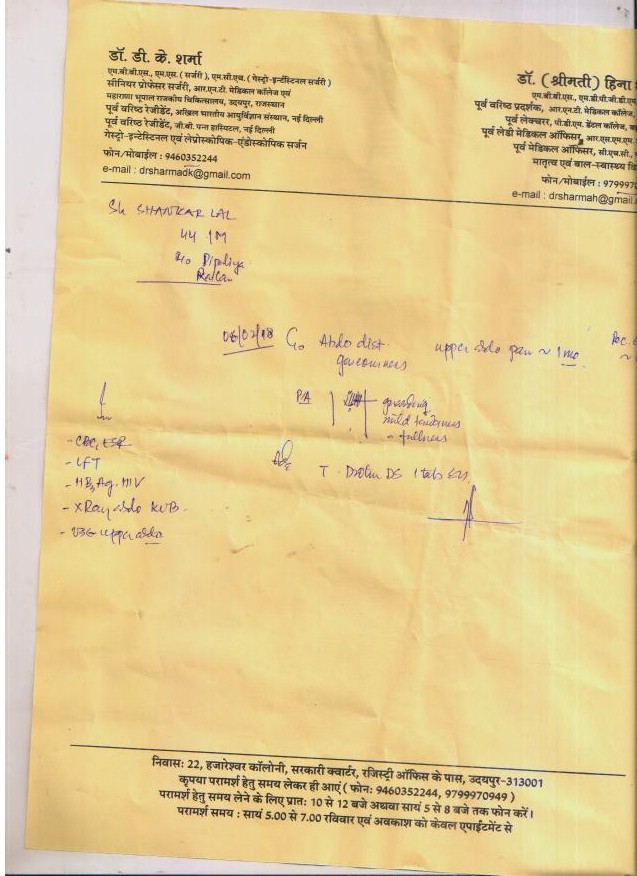 डॉ. डी. के. शर्मा
एम.बी.बी.एस., एम.एस. (सर्जरी), एम.सी.एच. (गेस्ट्रो-इन्टेस्टिनल सर्जरी)
सीनियर प्रोफेसर सर्जरी, आर.एन.टी. मेडिकल कॉलेज एवं
महाराणा भूपाल राजकीय चिकित्सालय, उदयपुर, राजस्थान
पूर्व वरिष्ठ रेजीडेंट, अखिल भारतीय आयुर्विज्ञान संस्थान, नई दिल्ली
पूर्व वरिष्ठ रेजीडेंट, जी.बी. पन्त हास्पिटल, नई दिल्ली
गेस्ट्रो-इन्टेस्टिनल एवं लेप्रोस्कोपिक-एंडोस्कोपिक सर्जन
फोन/मोबाईल : 9460352244
e-mail : drsharmadk@gmail.com
डॉ. (श्रीमती) हिना
एम.बी.बी.एस., एम.डी.पी.जी.डी.
पूर्व वरिष्ठ प्रदर्शक, आर.एन.टी. मेडिकल कॉलेज,
पूर्व लेक्चरर, पी.डी.एम. डेंटल कॉलेज,
पूर्व लेडी मेडिकल ऑफिसर, आर.एस.एम.एम.
पूर्व मेडिकल ऑफिसर, सी.एच.सी.,
मातृत्व एवं बाल-स्वास्थ्य
फोन/मोबाईल : 979997
e-mail : drsharmah@gmail.
Sh SHANKAR LAL
44 / M
R/o Pipliya
C/o Abdo dist. upper abdo pain ~ 1 mo
P/A guarding
mild tenderness
fullness
- CBC, ESR
- LFT
- HBsAg. HIV
- X Ray abdo KUB.
- USG upper abdo
Adv
T. DS 1 tab
निवास: 22, हजारेश्वर कॉलोनी, सरकारी क्वार्टर, रजिस्ट्री ऑफिस के पास, उदयपुर-313001
कृपया परामर्श हेतु समय लेकर ही आएं ( फोन: 9460352244, 9799970949 )
परामर्श हेतु समय लेने के लिए प्रात: 10 से 12 बजे अथवा सायं 5 से 8 बजे तक फोन करें।
परामर्श समय : सायं 5.00 से 7.00 रविवार एवं अवकाश को केवल एपाईटमेंट से